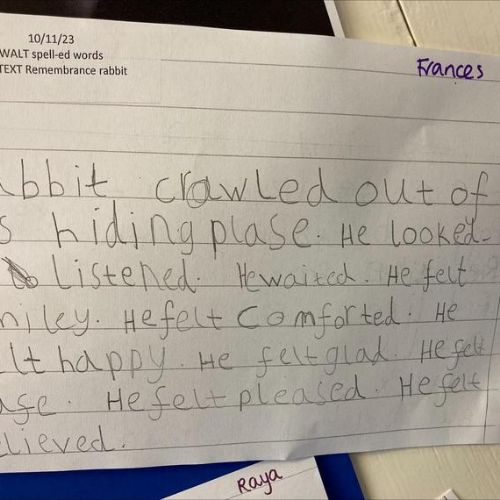 10/11/23
WALT spell-ed words
TEXT Remembrance rabbit
Frances
abbit crawled out of
s hiding plase. He looked.
Listened. He waited. He felt
miley. He felt comforted. He
elt happy. He felt glad. He felt
afe. He felt pleased. He felt
elieved.
Raya